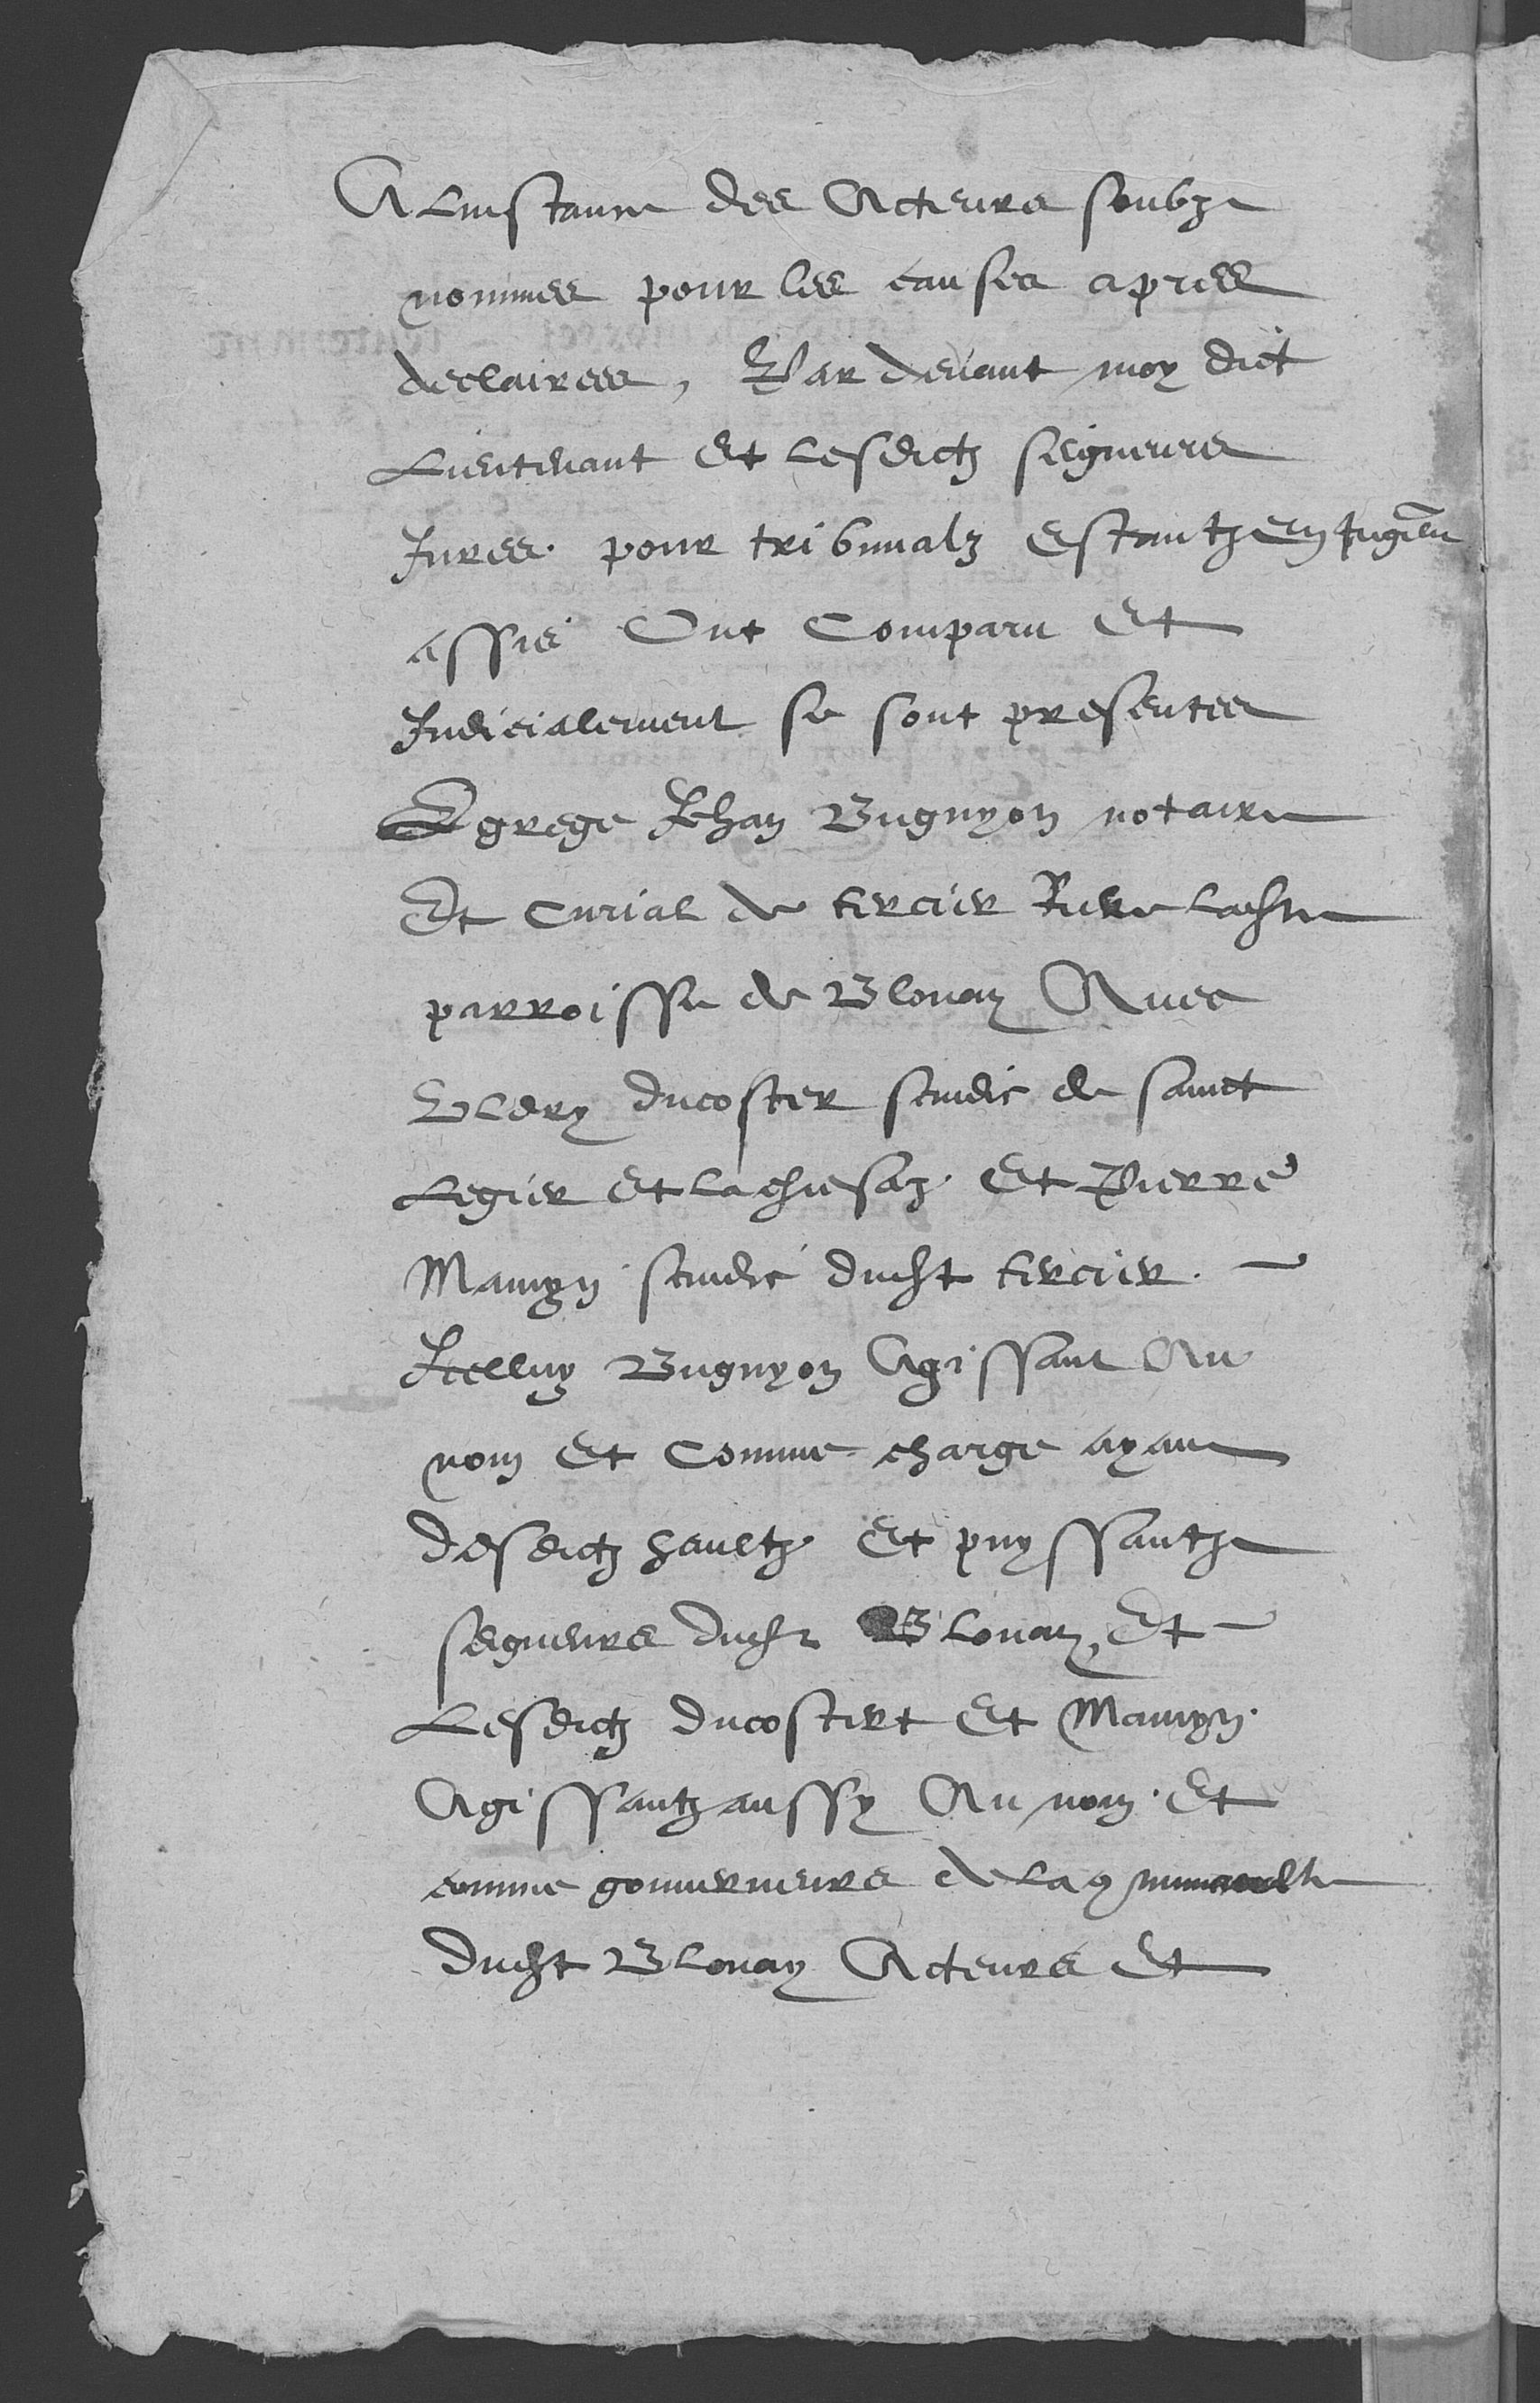 A Linstance des Acteurs soubz
nommes pour les causes apres
declairees, Par devant moy dict
Lieutenant Et lesdictz seigneurs
Jures pour tribunalz Estantz En Jugemt
assis Ont Comparu Et
Judicialement se sont presentes
Egrege Jehan Bugnyon notaire
Et Curial de tercier Riere ladicte
parroisse de Blonay Avec
Uldry ducoster scindic de sainct
Legier Et lachiesaz Et Pierre
Mamyn scindic dudict tercier
Icelluy Bugnyon Agissant Au
nom Et Comme charge ayant
desdictz haultz Et puyssantz
seigneurs dudict Blonay, Et
Lesdictz ducostert Et Mamyn
Agissantz aussy Au nom Et
comme gouverneurs de la
dudict Blonay Acteurs Et